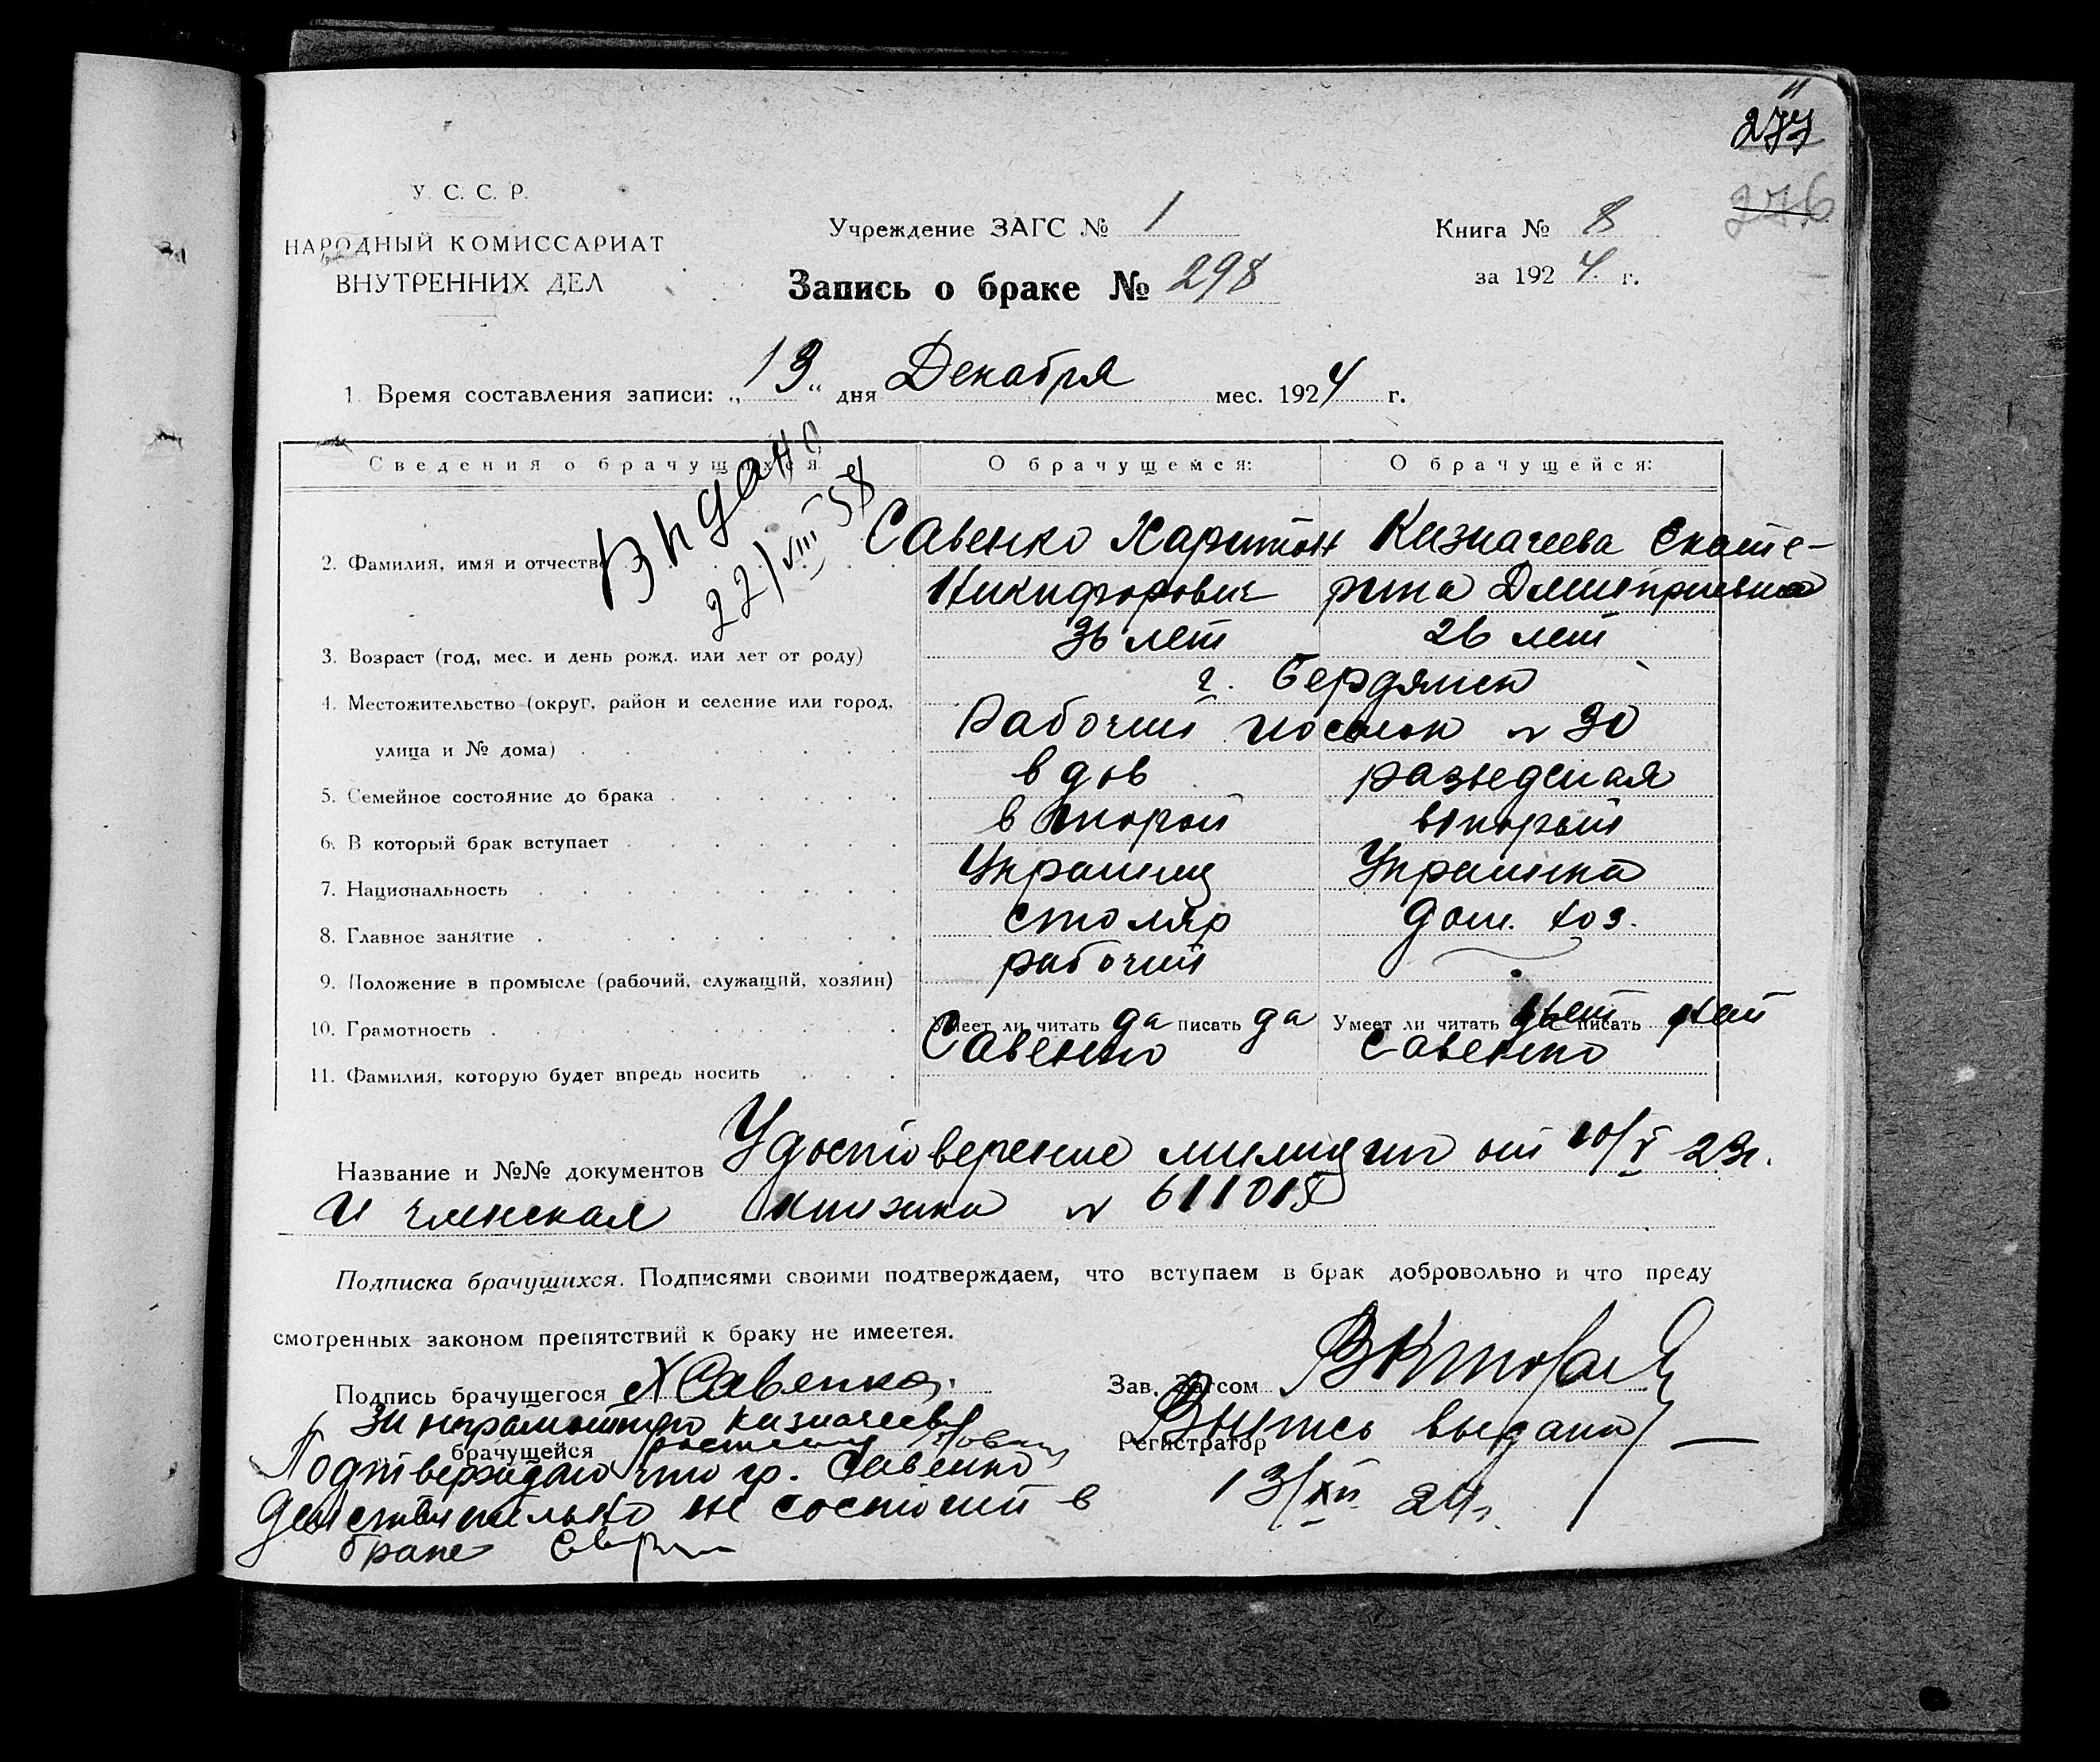 277
276
У. С. С. Р.
НАРОДНЫЙ КОМИССАРИАТ
ВНУТРЕННИХ ДЕЛ
Учреждение ЗАГС № 1
Книга № 8
Запись о браке № 298
за 1924 г.
1. Время составления записи: „13“ дня Декабря мес. 1924 г.
Сведения о брачущихся О брачущемся: О брачущейся:
Видано
22/VIII 58
2. Фамилия, имя и отчество Савенко Харитон Казначеева Екате-
Никифорович рина Дмитриевна
3. Возраст (год, мес. и день рожд. или лет от роду) 36 лет 26 лет
4. Местожительство (округ, район и селение или город, г. Бердянск
улица и № дома) Рабочий поселок № 30
5. Семейное состояние до брака вдов разведеная
6. В который брак вступает второй вторый
7. Национальность Украинец Украинка
8. Главное занятие столяр дом. хоз.
9. Положение в промысле (рабочий, служащий, хозяин) рабочий
10. Грамотность Умеет ли читать да писать да Умеет ли читать нет писать нет
11. Фамилия, которую будет впредь носить Савенко Савенко
Название и №№ документов Удостоверение милиции от 10/V 23г.
и членская книжка №
Подписка брачущихся. Подписями своими подтверждаем, что вступаем в брак добровольно и что преду
смотренных законом препятствий к браку не имеется.
Подпись брачущегося Х Савенко. Зав. Загсом
За неграмотную Казначееву
брачущейся Регистратор Выпись выдана
Подтверждаю что гр. Савенко
действительно не состоит в 13/XII 24г.
браке